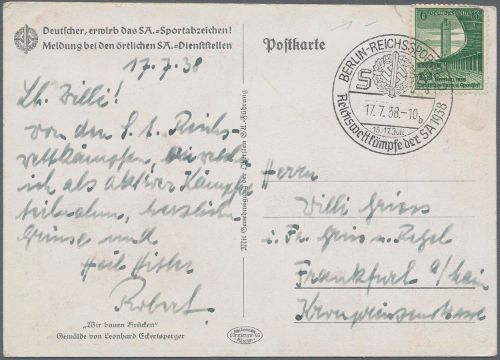 Deutscher, erwirb das SA.=Sportabzeichen!
Meldung bei den örtlichen SA.=Dienststellen
17.7.38
Lb. Willi!
von den S.A. Reichs-
wettkämpfen,
ich als aktiver Kämpfer
teilnahm, herzliche
Grüsse und
Heil Hitler
Robert.
„Wir bauen Brücken"
Gemälde von Leonhard Eckertsperger
Mit Genehmigung der Obersten SA.-Führung
Postkarte
BERLIN-REICHSSPORTFELD
17.7.38.-10
b
15.-17. Juli
Reichswettkämpfe der SA 1938
6
Herrn
Willi Griess
i. Fa. Gris u.
Frankfurt a/Main
Kronprinzenstrasse